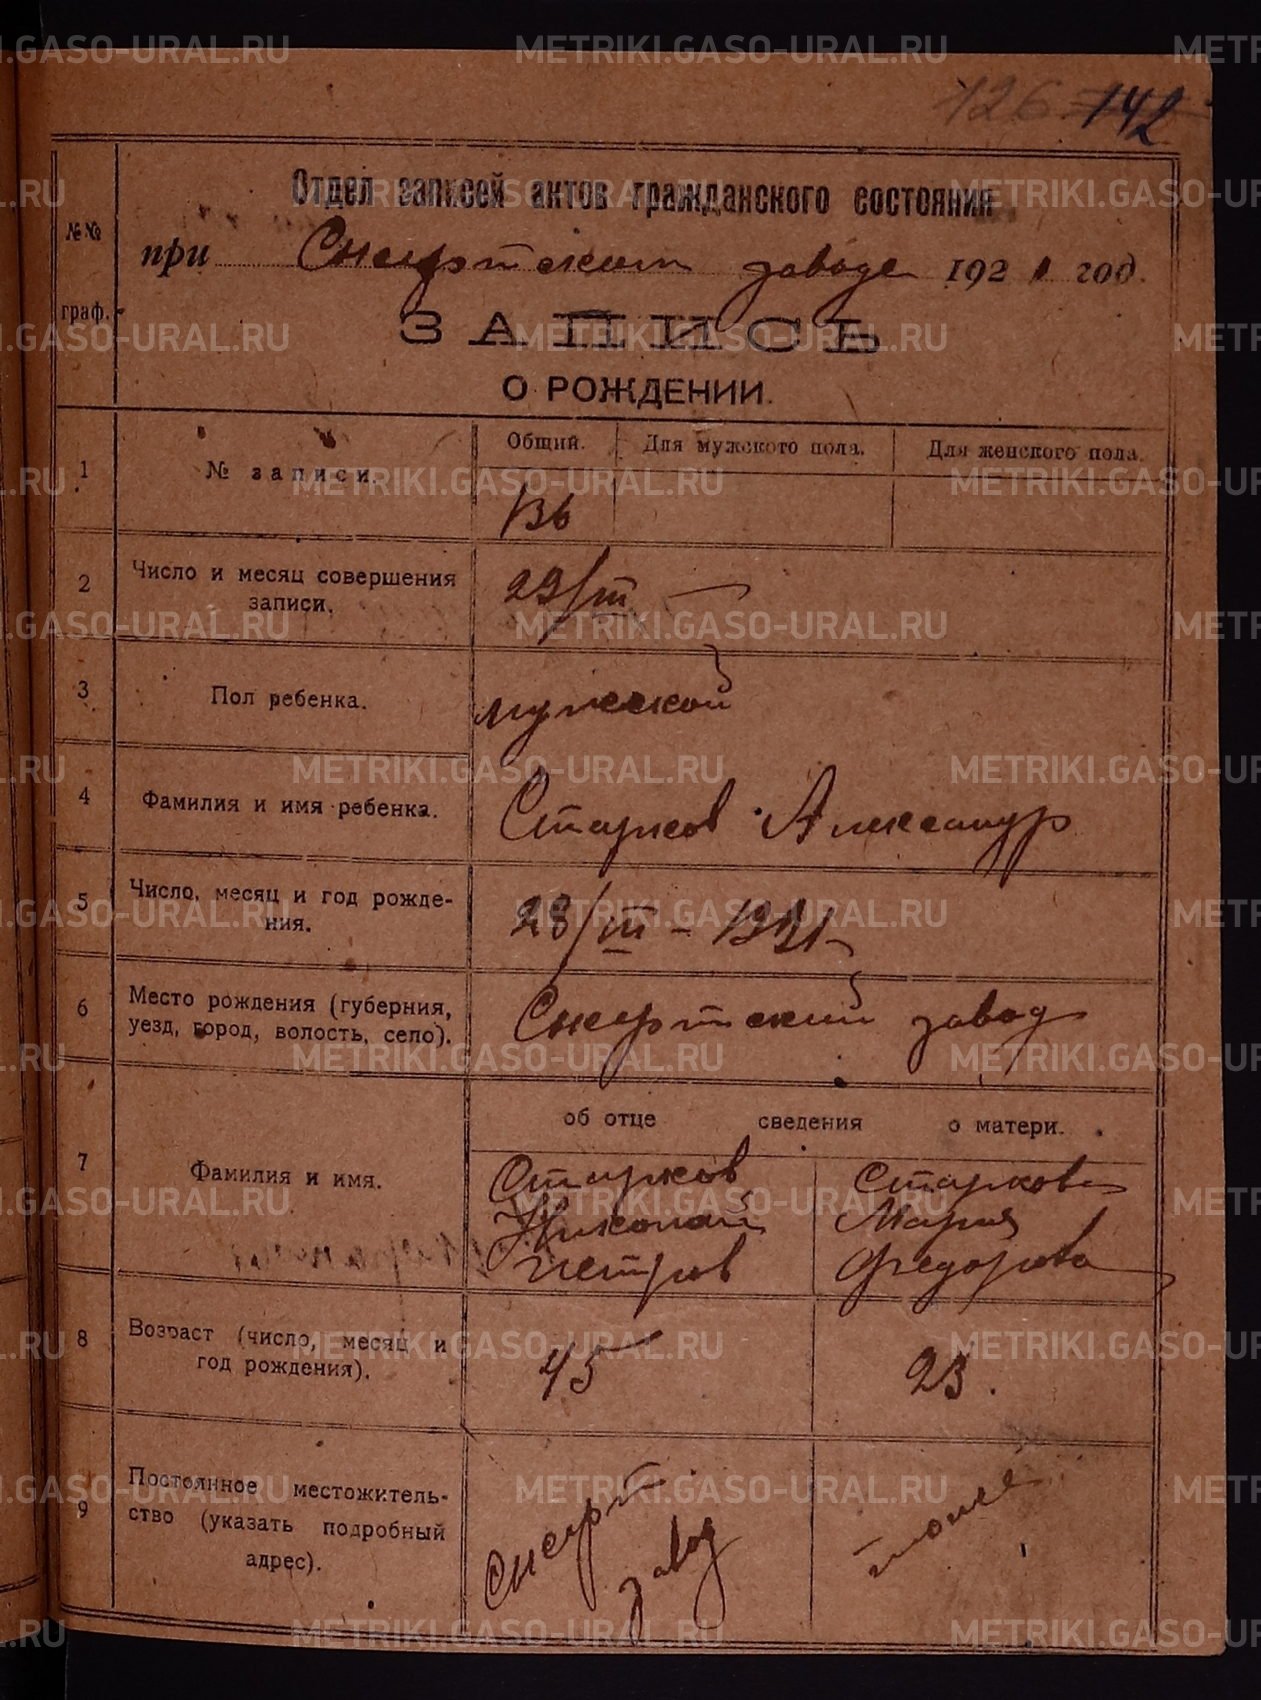 126 142
Отдел записей актов гражданского состояния
№№ граф.
при Сысертском заводе 1921 год.
ЗАПИСЬ
О РОЖДЕНИИ.
1 № записи. Общий. Для мужского пола. Для женского пола.
136
2 Число и месяц совершения
записи.
29/III
3 Пол ребенка. мужской
4 Фамилия и имя ребенка. Старков Александр
5 Число, месяц и год рожде-
ния.
28/III - 1921
6 Место рождения (губерния,
уезд, город, волость, село).
Сысертский завод
об отце сведения о матери.
7 Фамилия и имя.
Старков Старкова
Николай Мария
Петров Федорова
8 Возраст (число, месяц и
год рождения).
45 23.
9 Постоянное местожитель-
ство (указать подробный
адрес).
Сысерт.
завод
тоже
METRIKI.GASO-URAL.RU